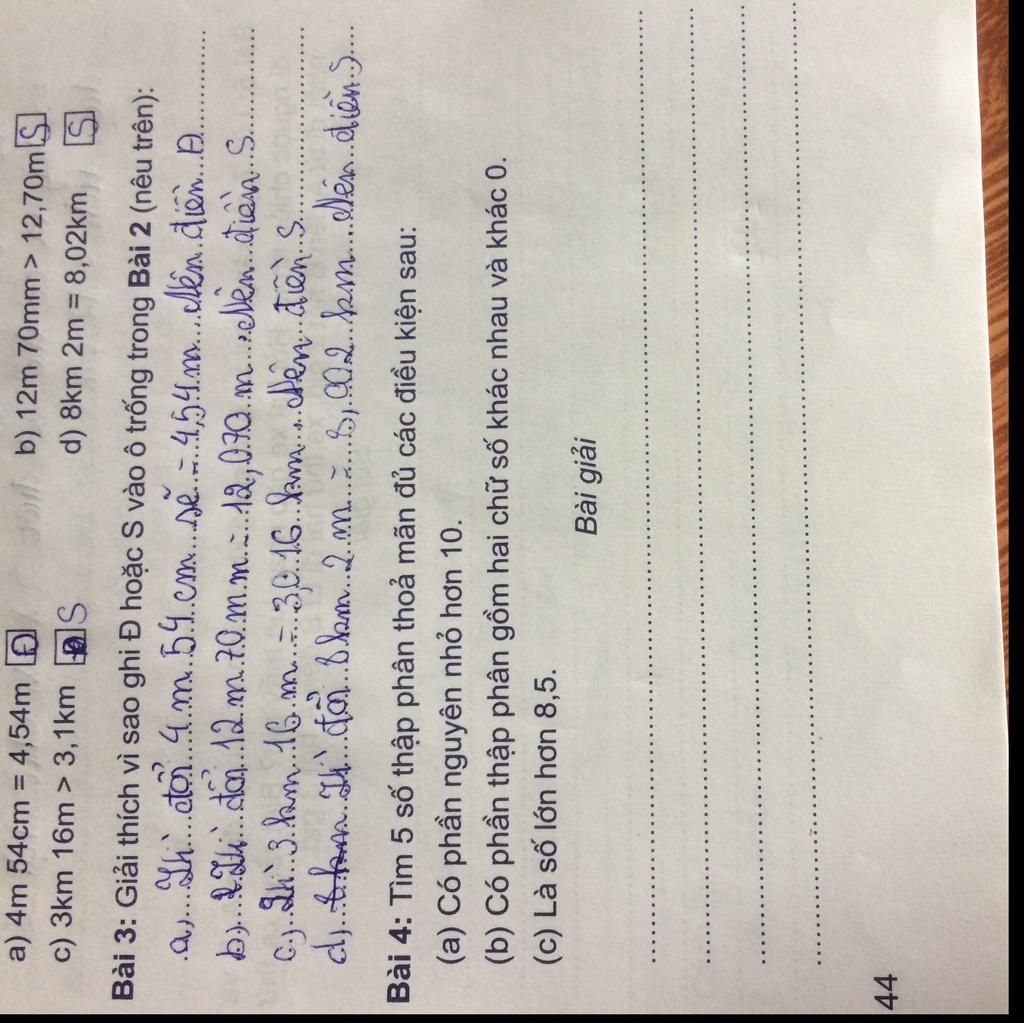 a) 4m 54cm = 4,54m Đ b) 12m 70mm > 12,70m S
c) 3km 16m > 3,1km S d) 8km 2m = 8,02km S
Bài 3: Giải thích vì sao ghi Đ hoặc S vào ô trống trong Bài 2 (nêu trên):
a) Khi đổi 4 m 54 cm sẽ = 4,54 m Nên điền Đ
b) Khi đổi 12 m 70 mm = 12,070 m Nên điền S
c) Khi 3 km 16 m = 3,016 km Nên điền S
d) Khi đổi 8 km 2 m = 8,002 km Nên điền S
Bài 4: Tìm 5 số thập phân thoả mãn đủ các điều kiện sau:
(a) Có phần nguyên nhỏ hơn 10.
(b) Có phần thập phân gồm hai chữ số khác nhau và khác 0.
(c) Là số lớn hơn 8,5.
Bài giải
44